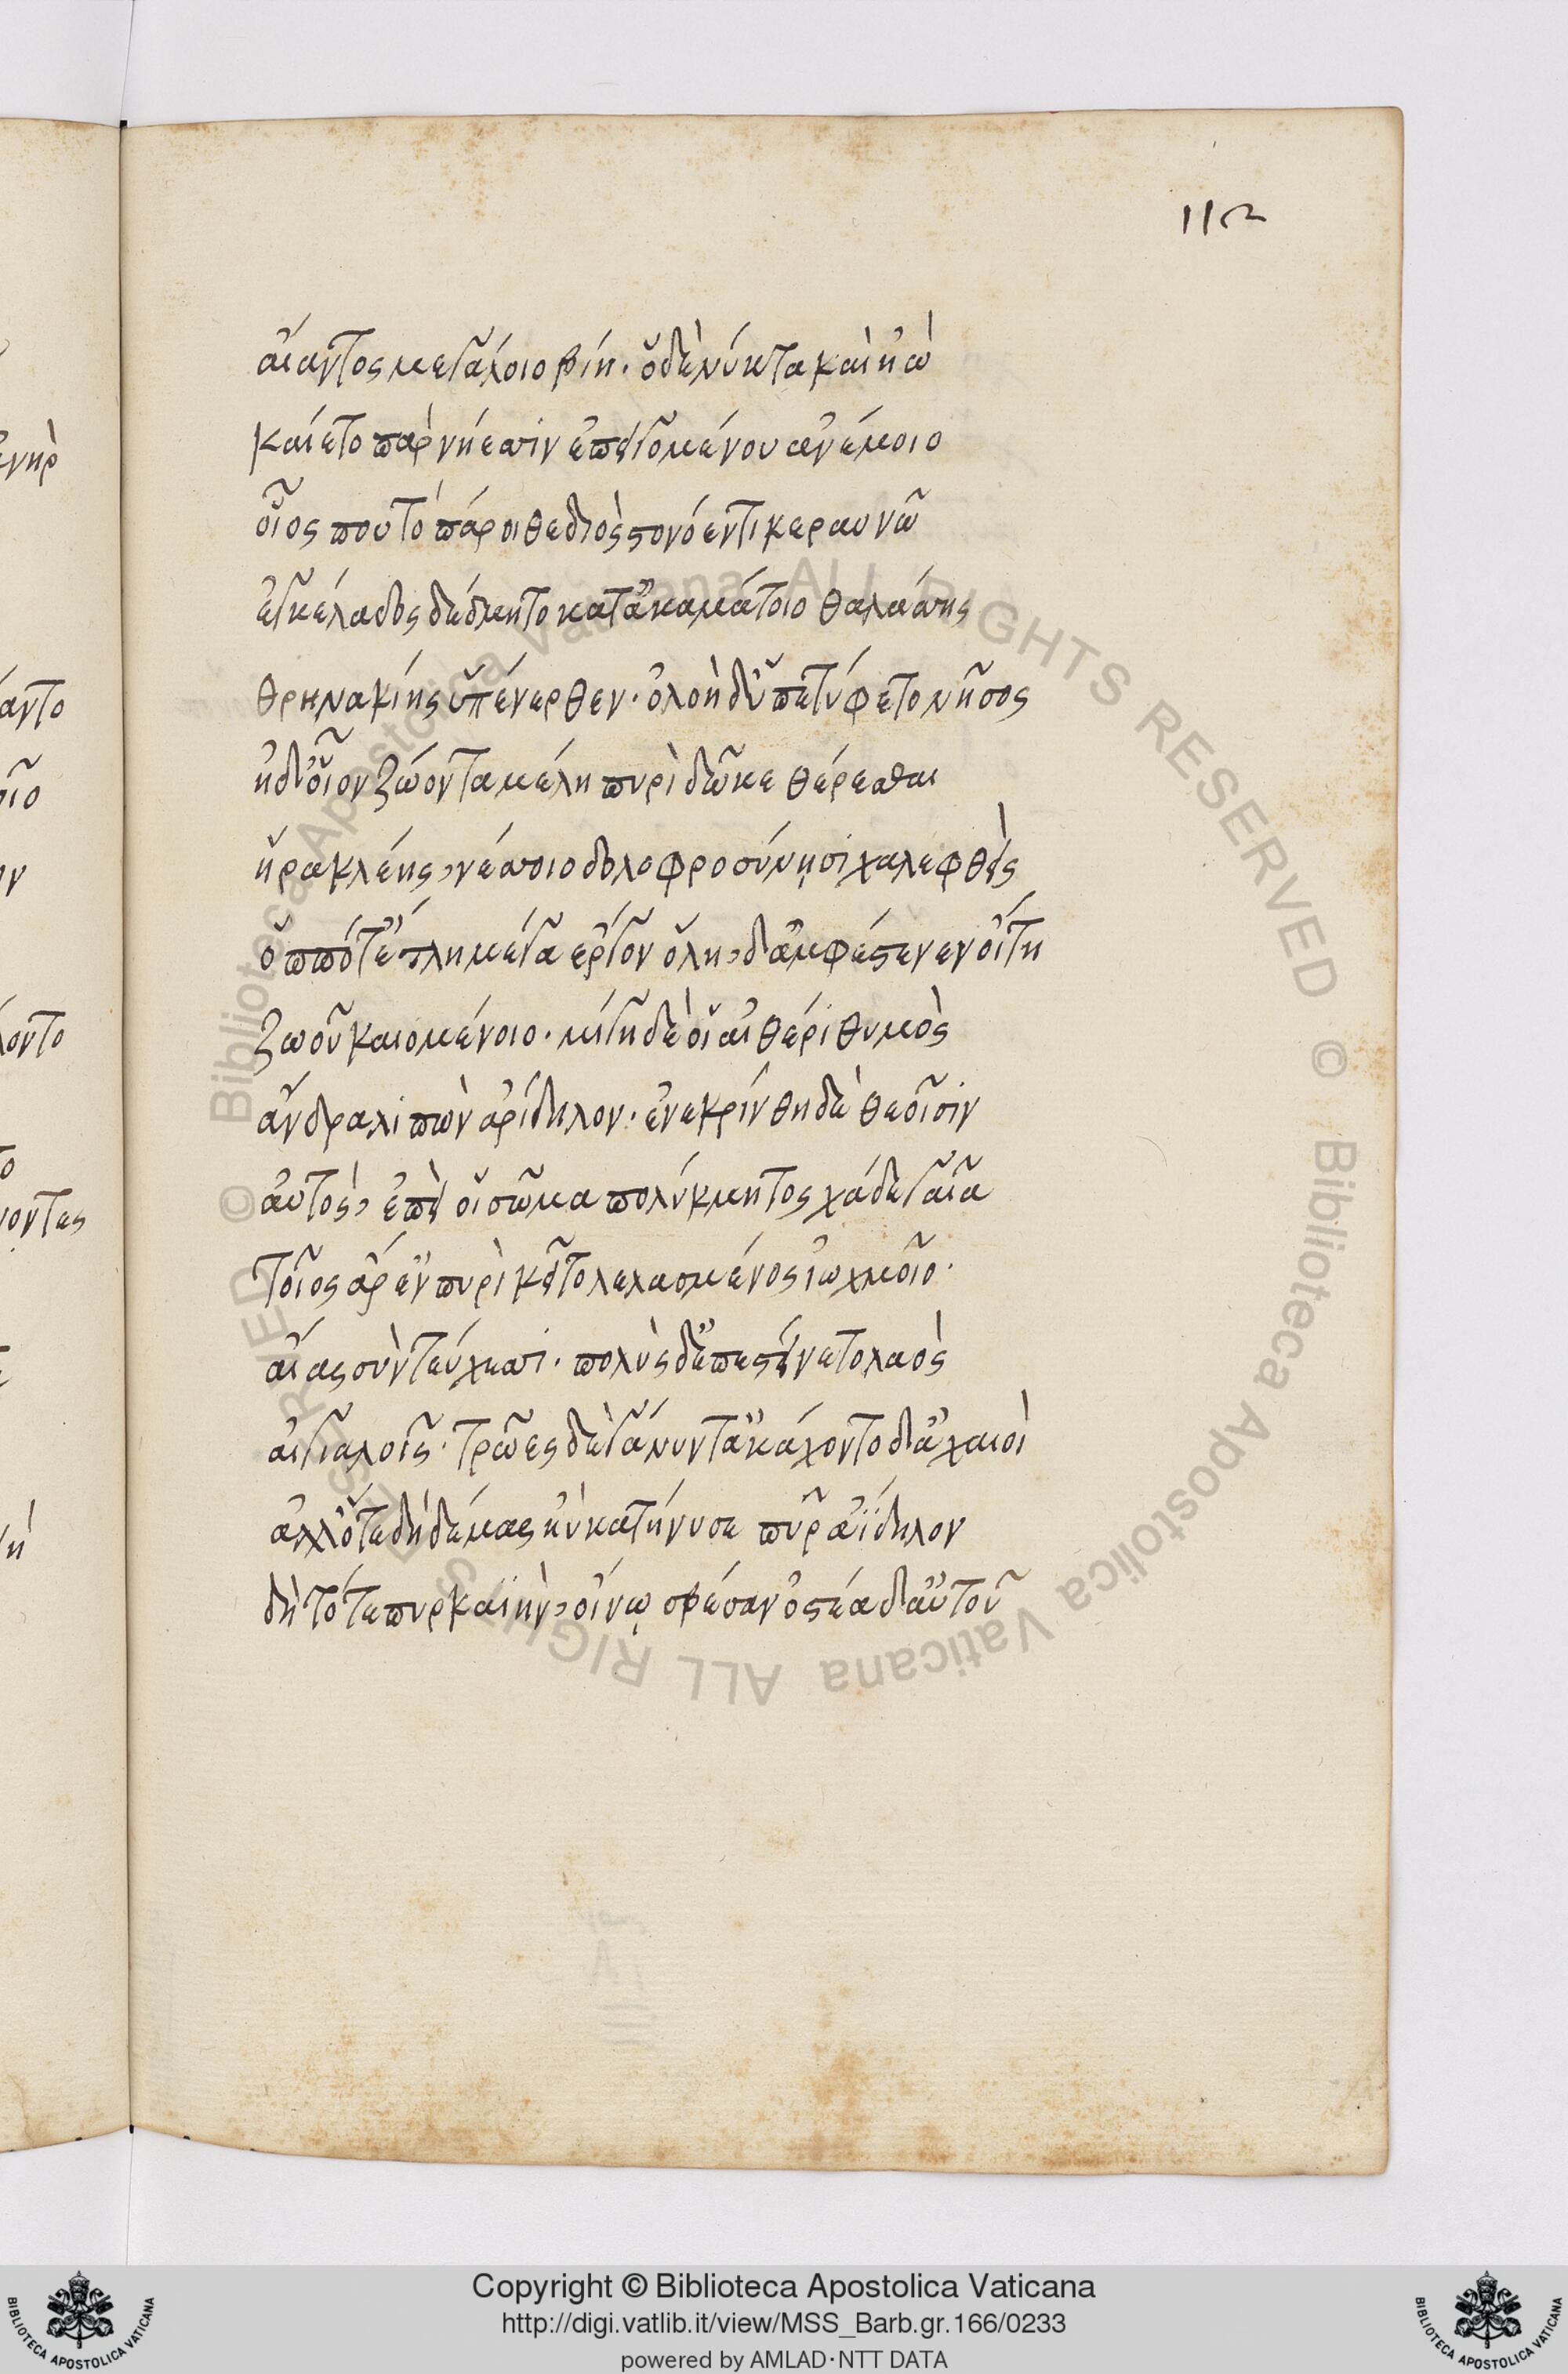 112
αἴαντος μεγάλοιο βίη· ὁ δὲ νύκτα καὶ ἠὼ
καίετο παρ νήεσσιν ἐπειγομένου ἀνέμοιο
οἷος που τὸ πάροιθε διὸς στονόεντι κεραυνῶ
ἐγκέλαδος δέδμητο κατ' ἀκαμάτοιο θαλάσσης
θρηνακίης ὑπένερθεν· ὀλοὴ δ' ὑπετύφετο νῆσος
ἠδ' οἷον ζώοντα μέλη πυρὶ δῶκε θέρεσθαι
ἡρακλέης, νέσσοιο δολοφροσύνῃσι χαλεφθείς
ὁππότ' ἔτλη μέγα ἔργον ὅλη, δ' ἀμφέστενεν οἴτη
ζωοῦ καιομένοιο· μίγη δέ οἱ αἰθέρι θυμὸς
ἄνδρα λιπὼν ἀρίδηλον· ἐνεκρίνθη δὲ θεοῖσιν
αὐτὸς, ἐπεί οἱ σῶμα πολύκμητος χάδε γαῖα
τοῖος ἄρ ἐν πυρὶ κεῖτο λελασμένος ἰωχμοῖο·
αἴας σὺν τεύχεσσι· πολὺς δ' ἐπεστείνετο λαὸς
αἰγιαλοῖς· τρῶες δὲ γάνυντ' ἀκάχοντο δ' ἀχαιοὶ
ἀλλ' ὅτε δὴ δέμας ἠὺ κατήνυσε πῦρ ἀΐδηλον
δὴ τότε πυρκαϊὴν, οἴνῳ σβέσαν ὀστέα δ' αὐτοῦ
Copyright © Biblioteca Apostolica Vaticana
http://digi.vatlib.it/view/MSS_Barb.gr.166/0233
powered by AMLAD·NTT DATA